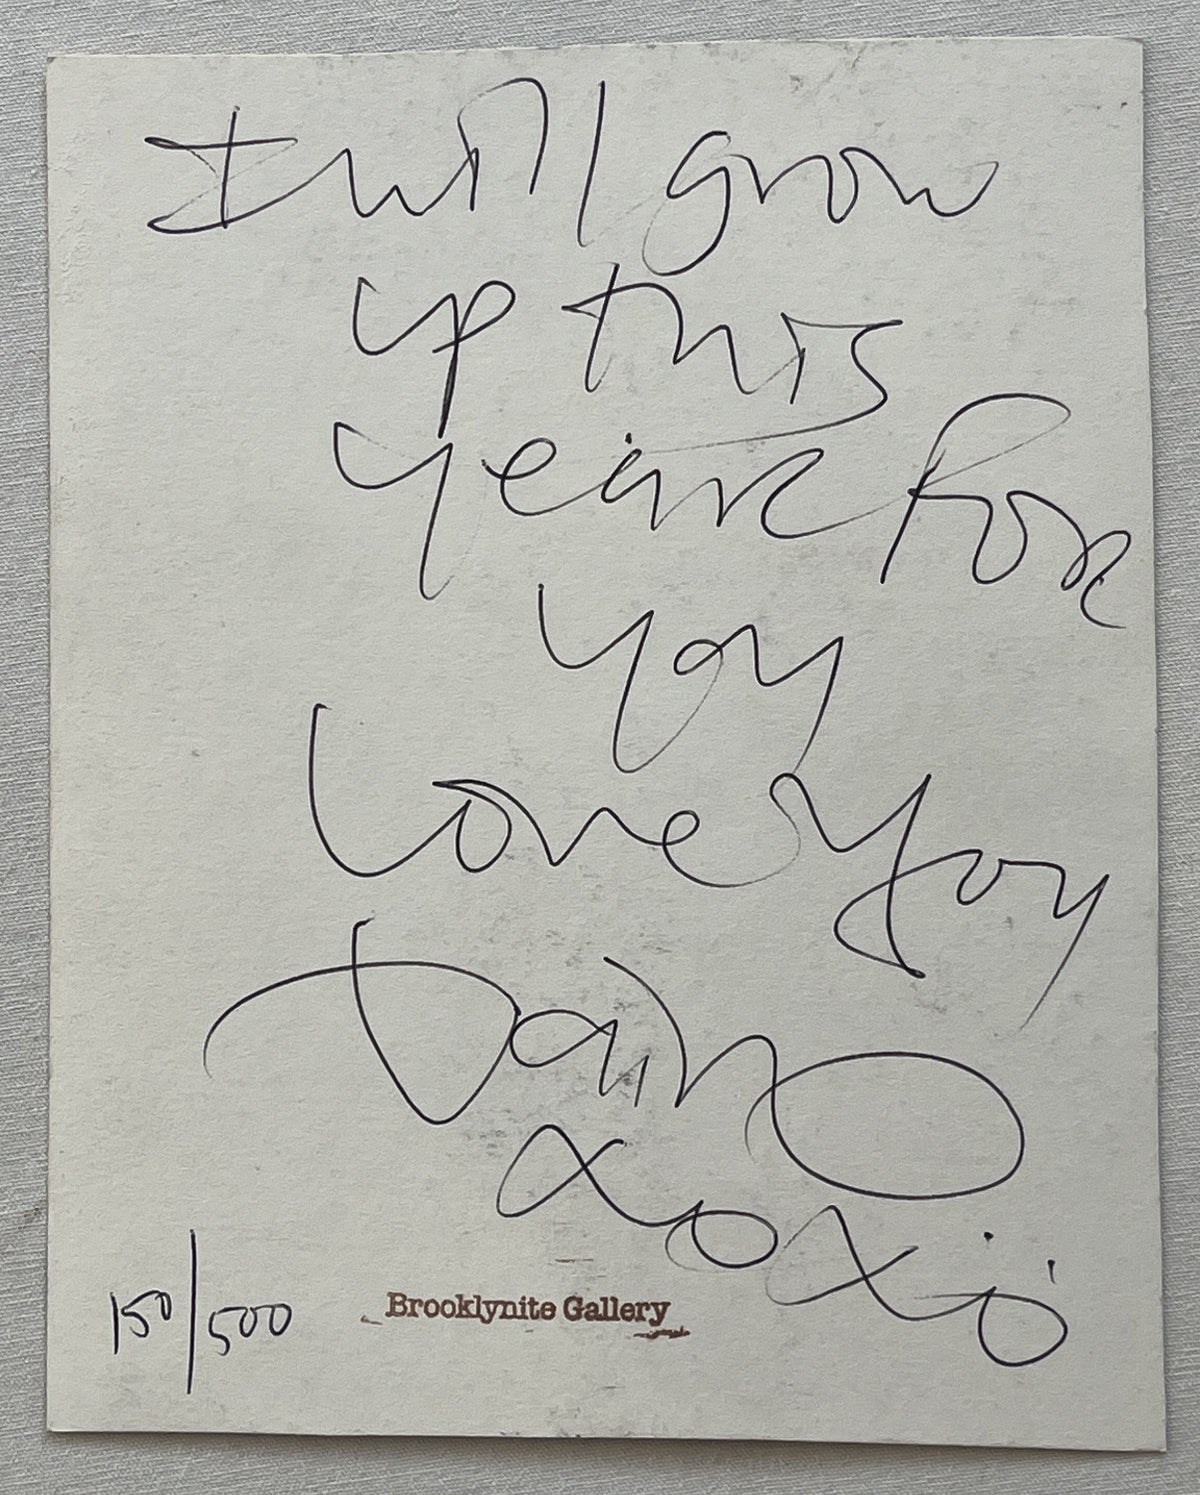 I will grow
up this
year for
you
Love you
Dain
xoxo
150/500
Brooklynite Gallery